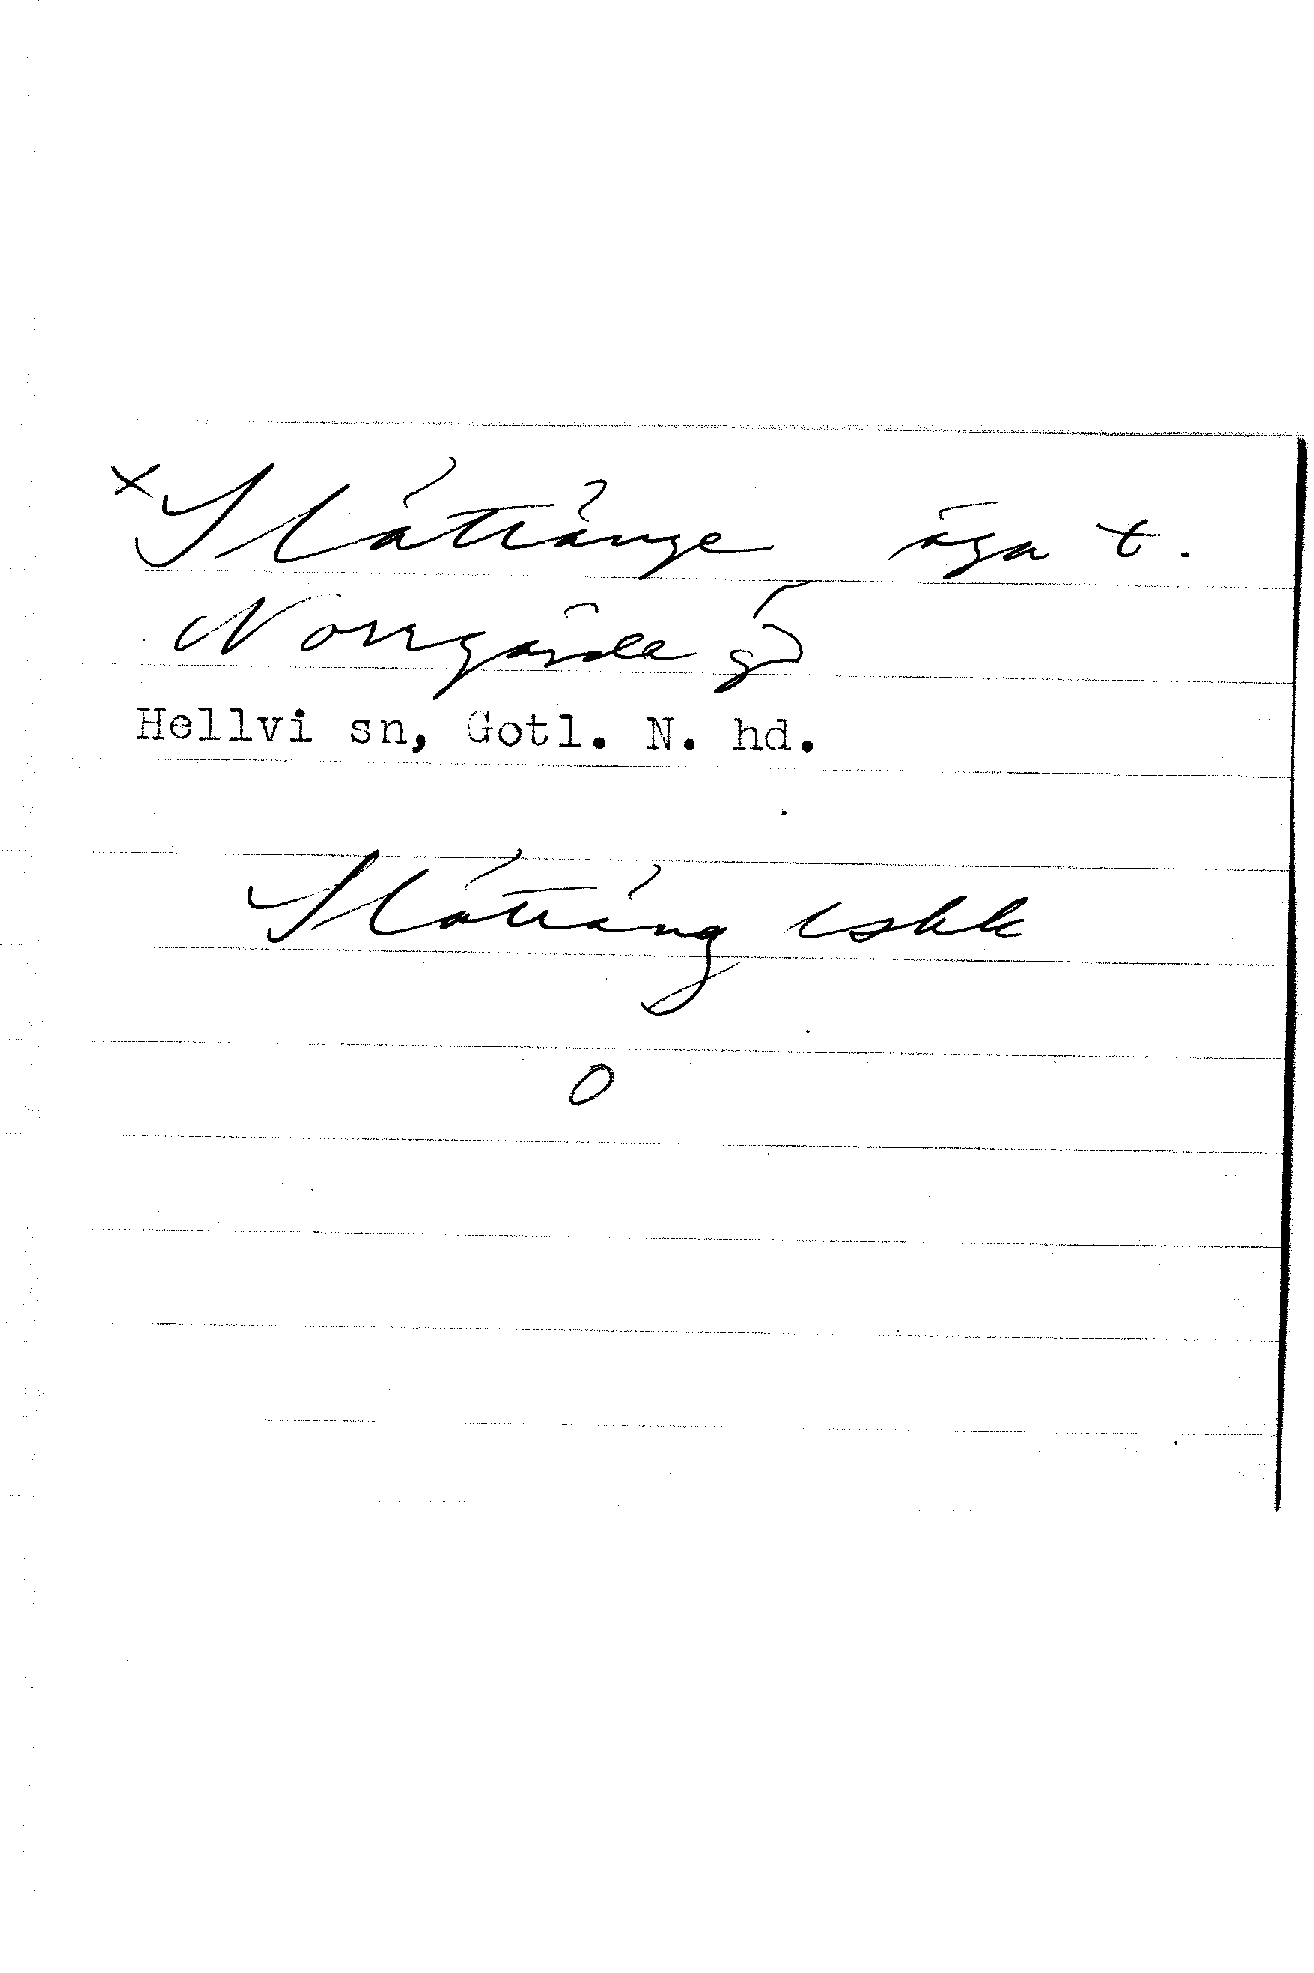 × Slåttänge äga t.
Norrgårde gd
Hellvi sn, Gotl. N. hd.
Slåttäng lskk
0